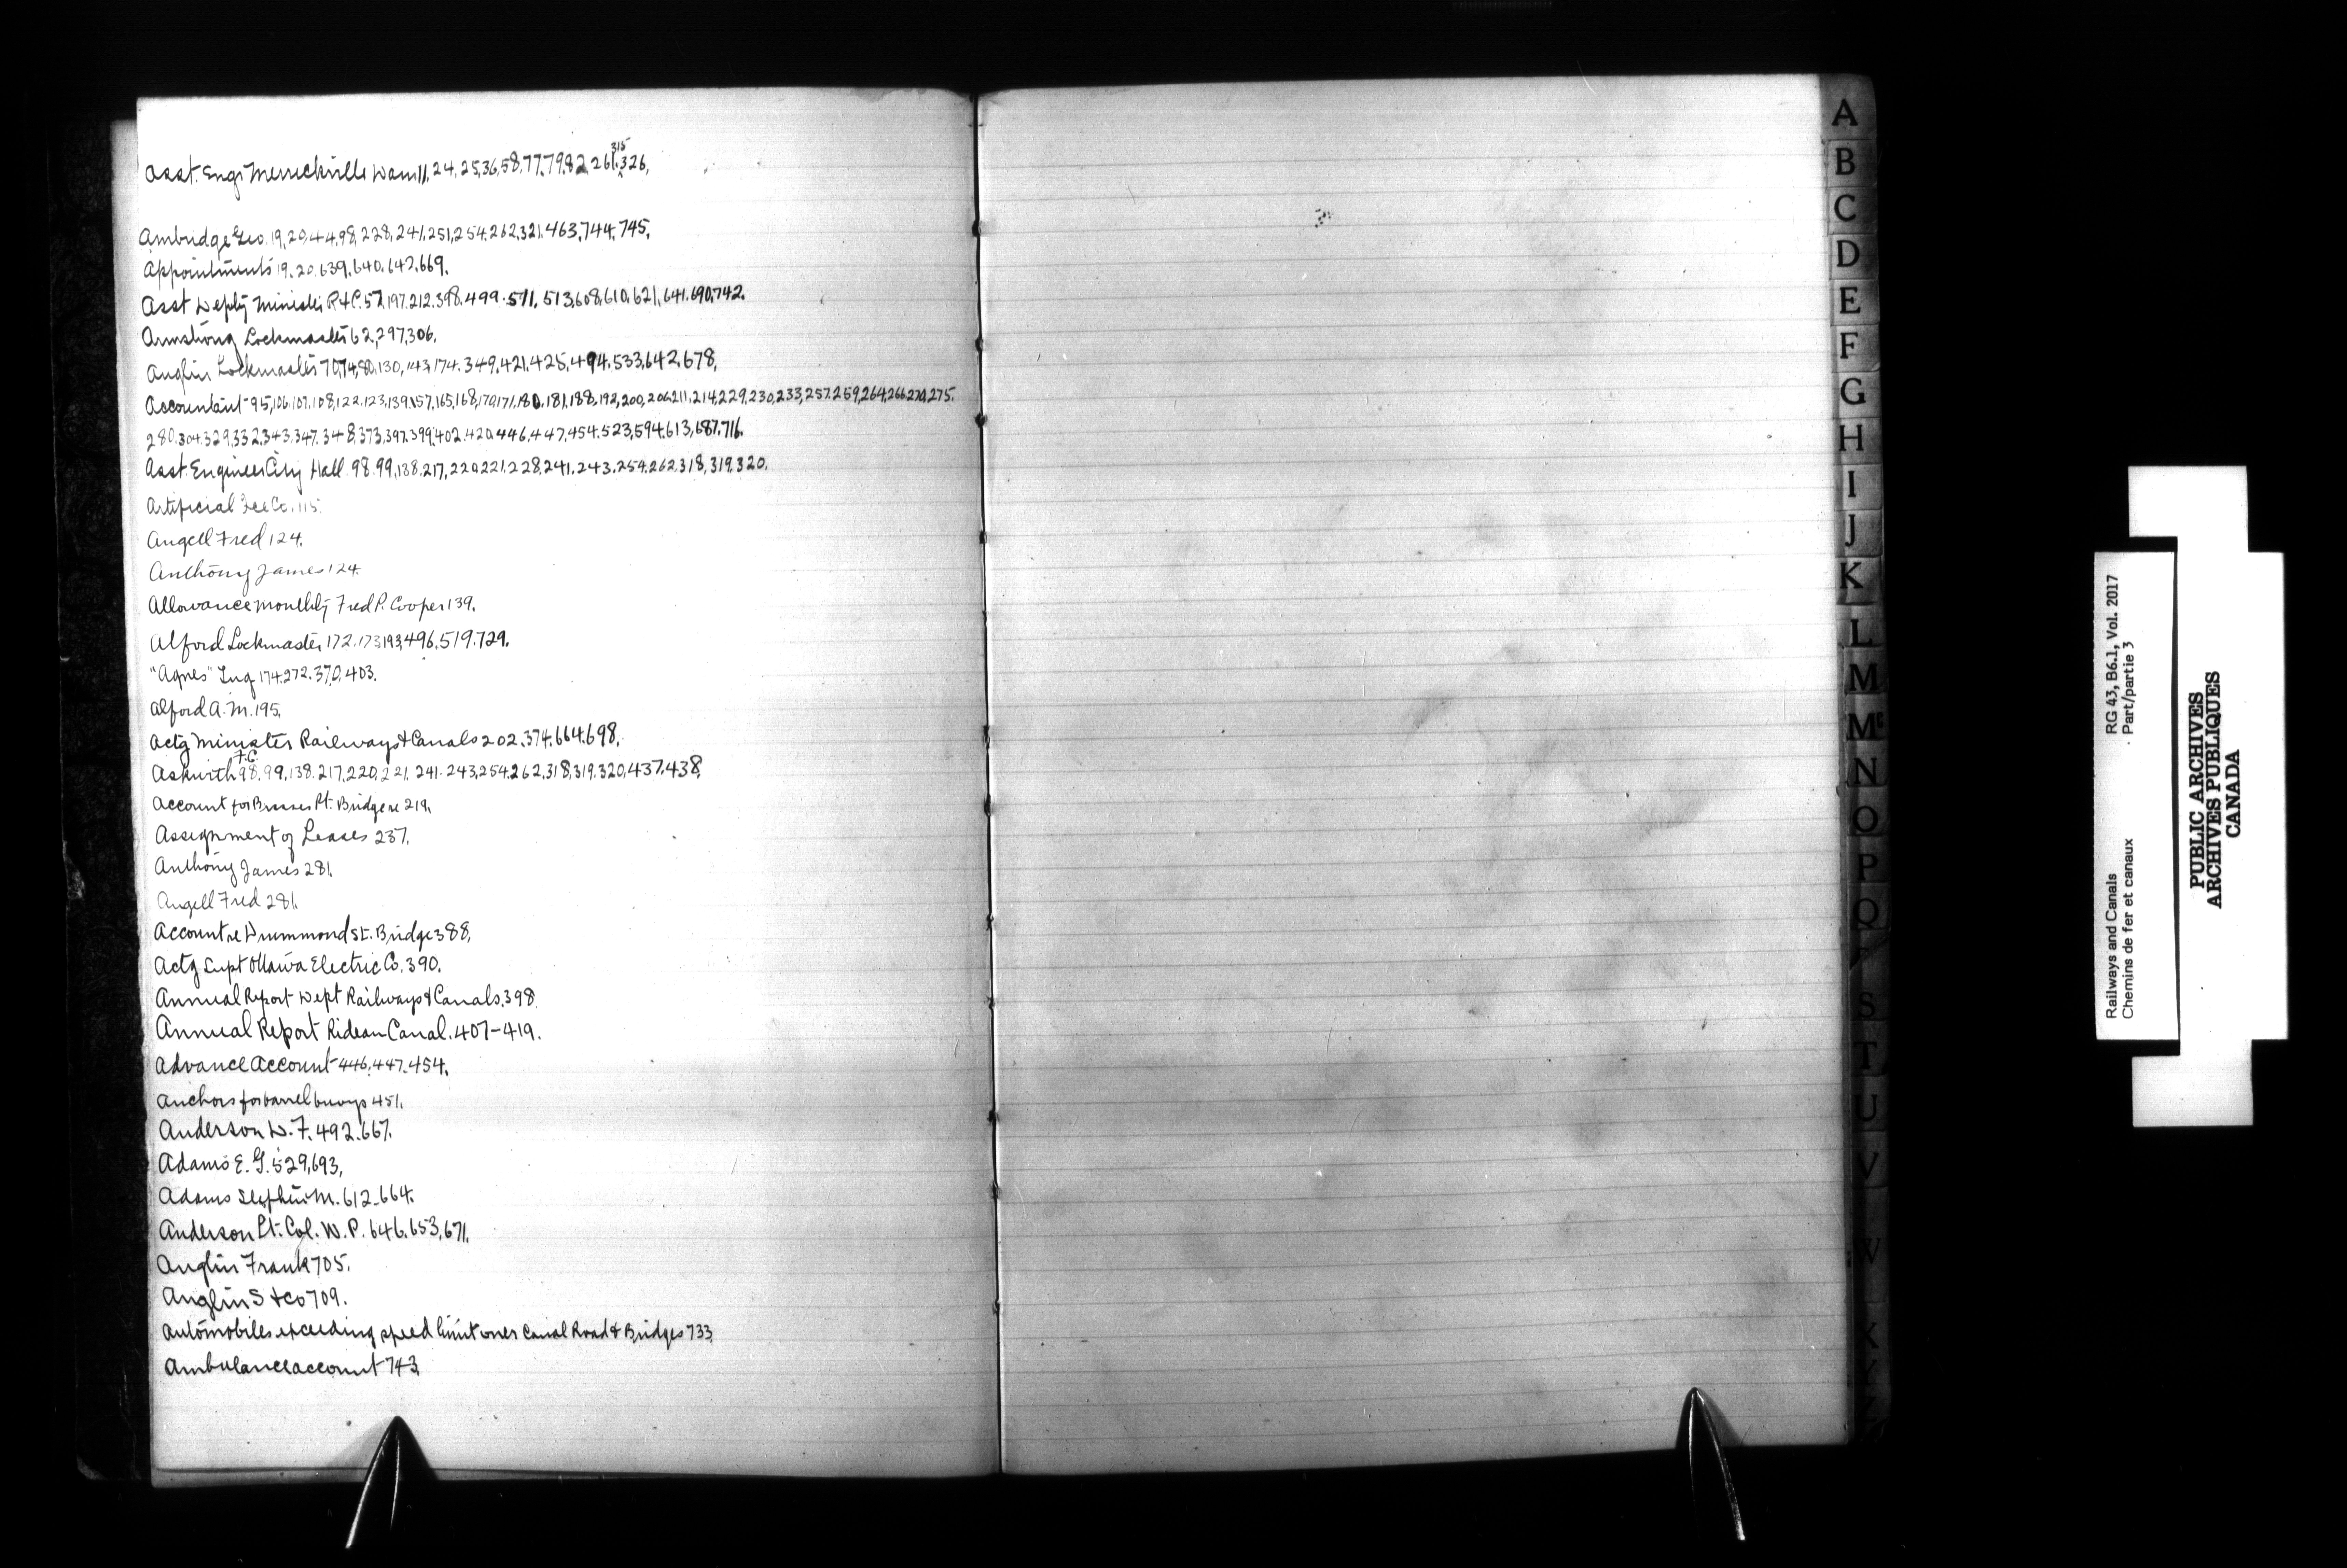 Asst. Engr Merrickville Dam 11, 24, 25, 36, 58, 77, 79, 82, 261, 315, 326,
Ambridge Geo. 19, 20, 44, 98, 228, 241, 251, 254, 262, 321, 463, 744, 745.
Appointments 19. 20. 639. 640. 642. 669.
Asst Deputy Minister R & C. 57, 197. 212. 398. 499. 511. 513, 608, 610, 621, 641. 690, 742.
Armstrong Lockmaster 62, 297, 306.
Anglin Lockmaster 70, 74, 80, 130, 143, 174. 349. 421. 425, 494. 533, 642. 678,
Accountant 95, 106, 107, 108, 122, 123, 139, 157, 165, 168, 170, 171, 180, 181, 188, 192, 200, 206, 211, 214, 229, 230, 233, 257, 259, 264, 266, 270, 275.
280, 304, 329, 332, 343, 347, 348, 373, 397, 399, 402, 420, 446, 447, 454, 523, 594, 613, 687, 716.
Asst. Engineer City Hall 98. 99, 138. 217, 220, 221, 228, 241, 243, 254, 262, 318, 319, 320.
Artificial Ice Co. 115.
Angell Fred 124.
Anthony James 124.
Allowance monthly Fred P. Cooper 139.
Alford Lockmaster 172. 173, 193, 496. 519. 729.
"Agnes" Tug 174. 272. 370, 403.
Alford A. M. 195.
Actg Minister Railways & Canals 202. 374. 664. 698.
Askwith F.C. 98, 99, 138. 217, 220, 221, 241. 243, 254, 262, 318, 319. 320, 437, 438.
Account for Brasses Pt. Bridge re 219.
Assignment of Leases 237.
Anthony James 281.
Angell Fred 281.
Account re Drummond St. Bridge 388,
Actg Supt Ottawa Electric Co. 390.
Annual Report Dept Railways & Canals. 398.
Annual Report Rideau Canal. 407-419.
Advance Account 446, 447. 454.
Anchors for barrel buoys 451.
Anderson W. F. 492. 667.
Adams E. G. 529, 693,
Adams Stephen M. 612-664.
Anderson Lt. Col. W. P. 646, 653, 671.
Anglin Frank 705.
Anglin S & Co 709.
Automobiles exceeding speed limit over Canal Road & Bridges 733.
Ambulance account 743.
A
B
C
D
E
F
G
H
I
J
K
L
M
Mc
N
O
P
Q
S
T
U
V
W
X
Railways and Canals RG 43, B6.1, Vol. 2017
Chemins de fer et canaux Part/partie 3
PUBLIC ARCHIVES
ARCHIVES PUBLIQUES
CANADA